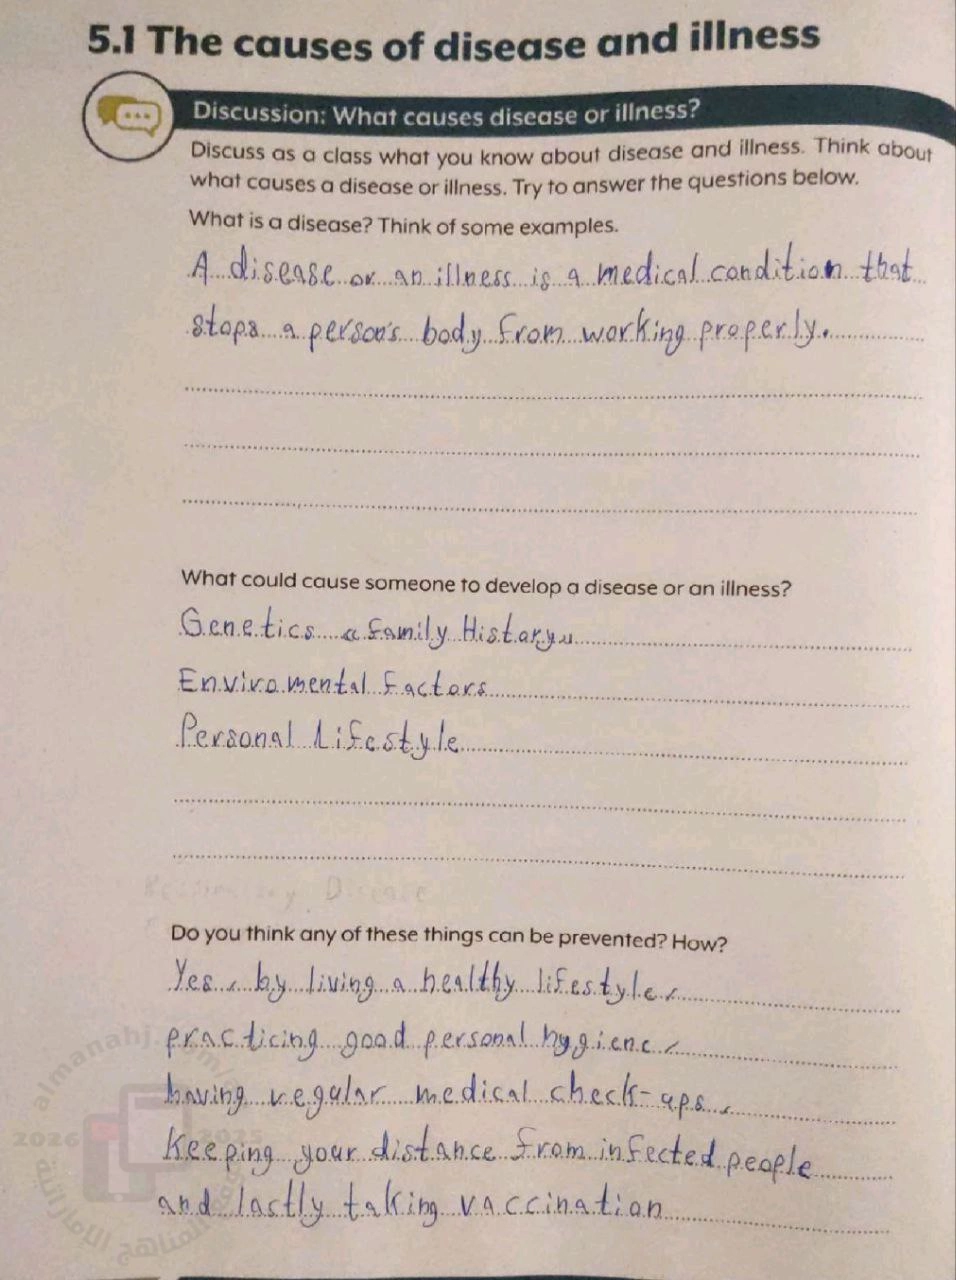 5.1 The causes of disease and illness
Discussion: What causes disease or illness?
Discuss as a class what you know about disease and illness. Think about
what causes a disease or illness. Try to answer the questions below.
What is a disease? Think of some examples.
A disease or an illness is a medical condition that
stops a person's body from working properly.
What could cause someone to develop a disease or an illness?
Genetics "Family History"
Enviromental Factors
Personal Lifestyle
Disease
Do you think any of these things can be prevented? How?
Yes, by living a healthy lifestyle,
practicing good personal hygiene,
having regular medical check-ups,
Keeping your distance from infected people
and lastly taking vaccination
almanahj.com/
2026 2025
المناهج الإماراتية